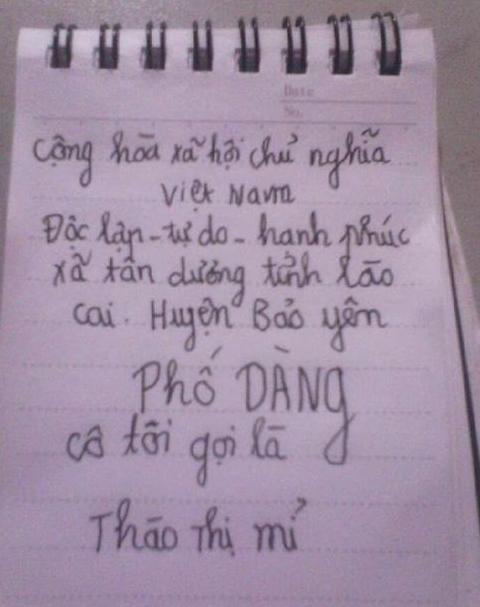 Date
No.
cộng hõa xã hội chủ nghĩa
Việt Nam
Độc lập - tự do - hanh phúc
xã tân dương tỉnh lão
cai. Huyện Bảo yên
PHỐ DÀNG
cô tôi gọi lã
Thão Thị mỉ